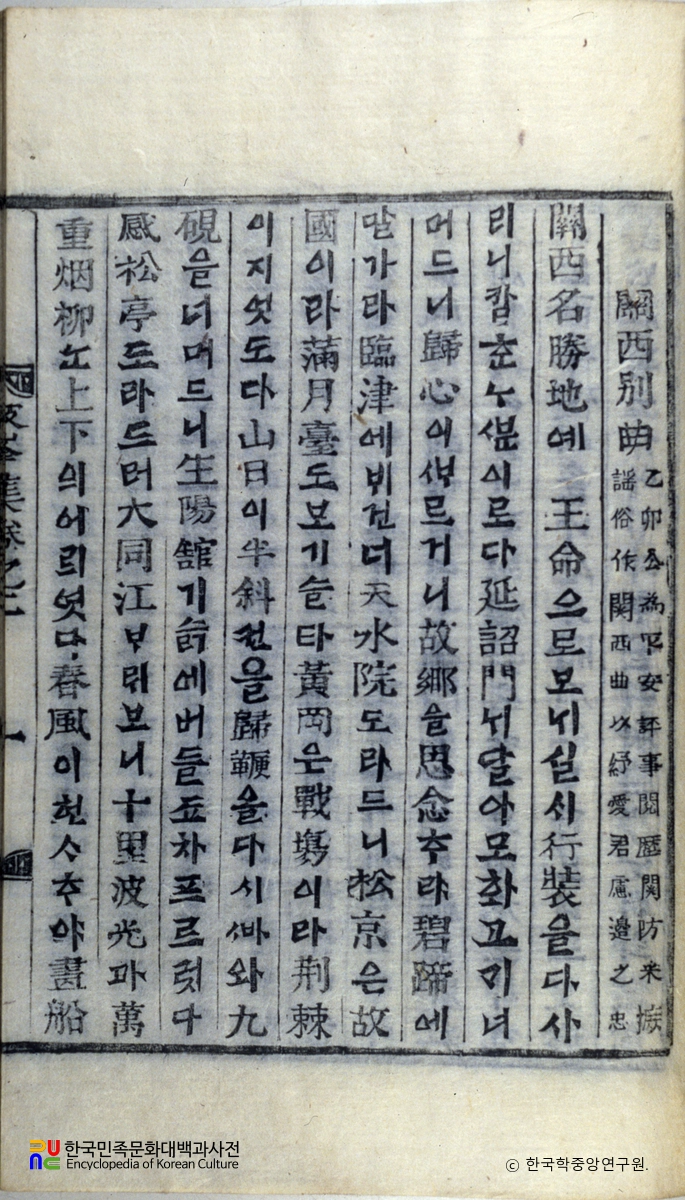 関西別曲
乙卯公為平安評事閱歷関防采摭
謠俗作関西曲以紓愛君慮邊之忠
關西名勝地예 王命으로보ᄂᆡ실ᄉᆡ行裝을다사
리니칼ᄒᆞᆫᄂᆞᄲᅮᆫ이로다延詔門ᄂᆡ달아모화고ᄀᆡ너
머드니歸心이ᄲᆞ르거니故鄕을思念ᄒᆞ랴碧蹄에
말가라臨津에ᄇᆡ건너天水院도라드니松京은故
國이라滿月臺도보기슬타黃岡은戰塲이라荆棘
이지엇도다山日이半斜컨을歸鞭을다시ᄲᅡ와九
硯을너머드니生陽舘기슭에버들죠차프르럿다
感松亭도라드러大同江ᄇᆞ라보니十里波光과萬
重烟柳ᄂᆞᆫ上下의어릐엿다春風이헌ᄉᆞᄒᆞ야畵船
岐峯集卷之
한국민족문화대백과사전
Encyclopedia of Korean Culture
ⓒ 한국학중앙연구원.